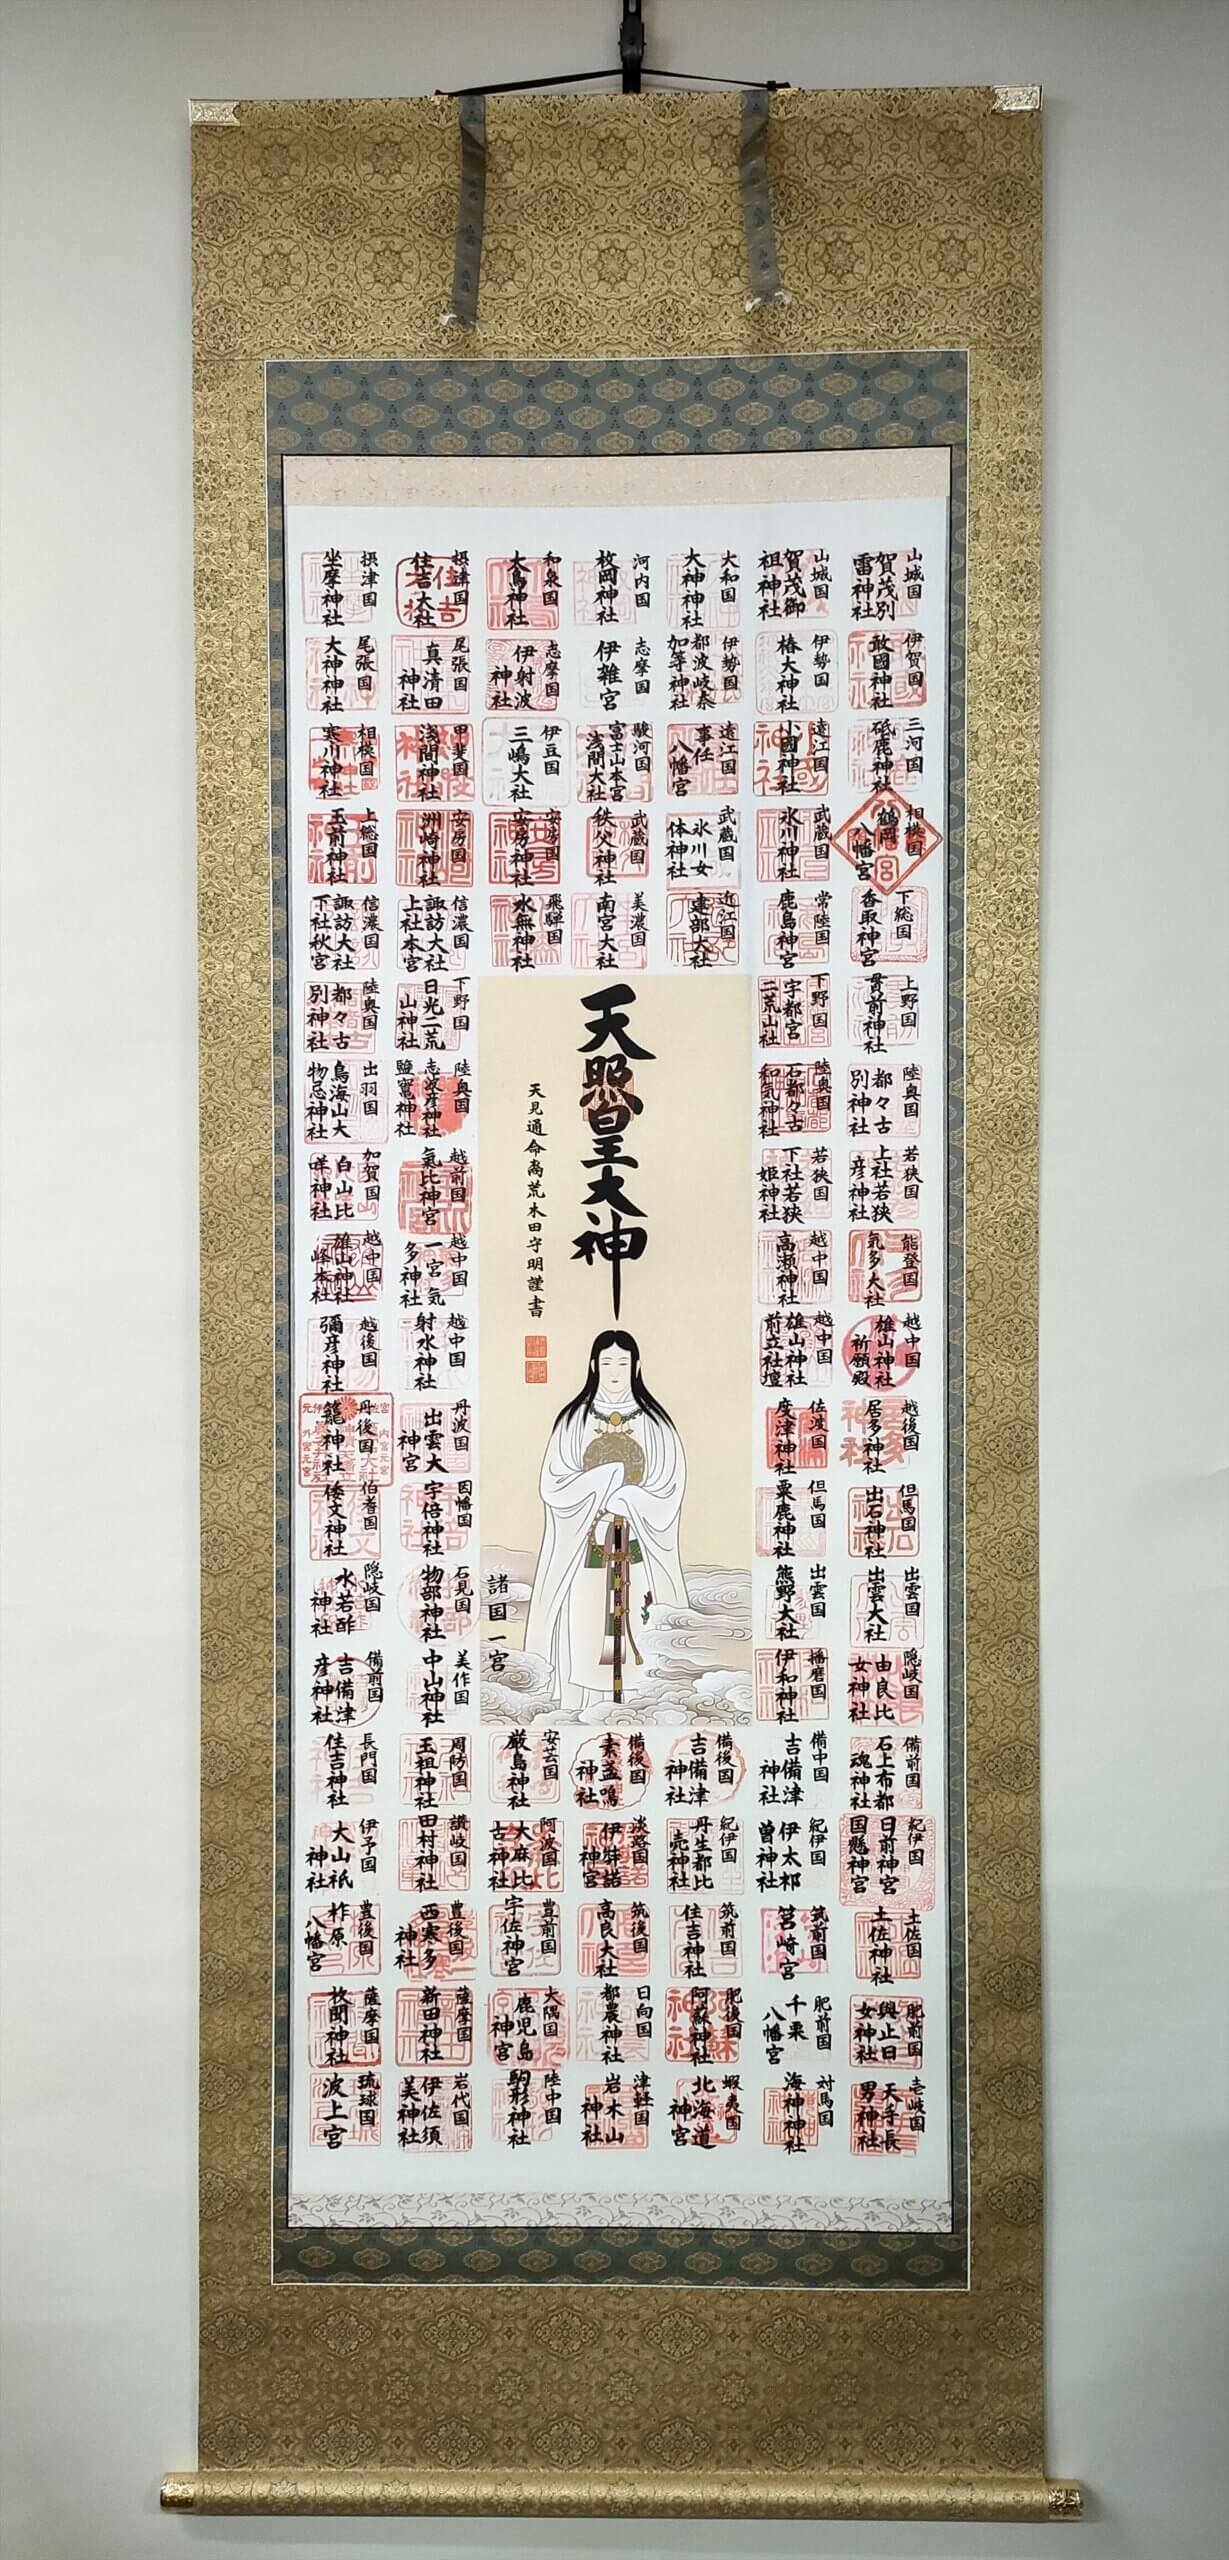 山城国 賀茂別雷神社
山城国 賀茂御祖神社
大和国 大神神社
河内国 枚岡神社
和泉国 大鳥神社
摂津国 住吉大社
摂津国 坐摩神社
伊賀国 敢國神社
伊勢国 椿大神社
伊勢国 都波岐奈加等神社
志摩国 伊雜宮
志摩国 伊射波神社
尾張国 真清田神社
尾張国 大神神社
三河国 砥鹿神社
遠江国 小國神社
遠江国 事任八幡宮
駿河国 富士山本宮浅間大社
伊豆国 三嶋大社
甲斐国 浅間神社
相模国 寒川神社
相模国 鶴岡八幡宮
武蔵国 氷川神社
武蔵国 氷川女体神社
武蔵国 秩父神社
安房国 安房神社
安房国 洲崎神社
上総国 玉前神社
下総国 香取神宮
常陸国 鹿島神宮
近江国 建部大社
美濃国 南宮大社
飛騨国 水無神社
信濃国 諏訪大社上社本宮
信濃国 諏訪大社下社秋宮
上野国 貫前神社
下野国 宇都宮二荒山神社
下野国 日光二荒山神社
陸奥国 都々古別神社
陸奥国 都々古別神社
陸奥国 石都々古和気神社
陸奥国 志波彦神社鹽竈神社
出羽国 鳥海山大物忌神社
若狭国 上社若狭彦神社
若狭国 下社若狭姫神社
越前国 氣比神宮
加賀国 白山比咩神社
能登国 気多大社
越中国 高瀬神社
越中国 一宮気多神社
越中国 雄山神社峰本社
越中国 雄山神社祈願殿
越中国 雄山神社前立社壇
越中国 射水神社
越後国 彌彦神社
越後国 居多神社
佐渡国 度津神社
丹波国 出雲大神宮
丹後国 籠神社
但馬国 出石神社
但馬国 粟鹿神社
因幡国 宇倍神社
伯耆国 倭文神社
出雲国 出雲大社
出雲国 熊野大社
石見国 物部神社
隠岐国 水若酢神社
隠岐国 由良比女神社
播磨国 伊和神社
美作国 中山神社
備前国 吉備津彦神社
備前国 石上布都魂神社
備中国 吉備津神社
備後国 吉備津神社
備後国 素盞嗚神社
安芸国 厳島神社
周防国 玉祖神社
長門国 住吉神社
紀伊国 日前神宮国懸神宮
紀伊国 伊太祁曽神社
紀伊国 丹生都比売神社
淡路国 伊弉諾神宮
阿波国 大麻比古神社
讃岐国 田村神社
伊予国 大山祇神社
土佐国 土佐神社
筑前国 筥崎宮
筑前国 住吉神社
筑後国 高良大社
豊前国 宇佐神宮
豊後国 西寒多神社
豊後国 柞原八幡宮
肥前国 與止日女神社
肥前国 千栗八幡宮
肥後国 阿蘇神社
日向国 都農神社
大隅国 鹿児島神宮
薩摩国 新田神社
薩摩国 枚聞神社
壱岐国 天手長男神社
対馬国 海神神社
蝦夷国 北海道神宮
津軽国 岩木山神社
陸中国 駒形神社
岩代国 伊佐須美神社
琉球国 波上宮
天照皇大神
天見通命裔荒木田守明謹書
諸国一宮